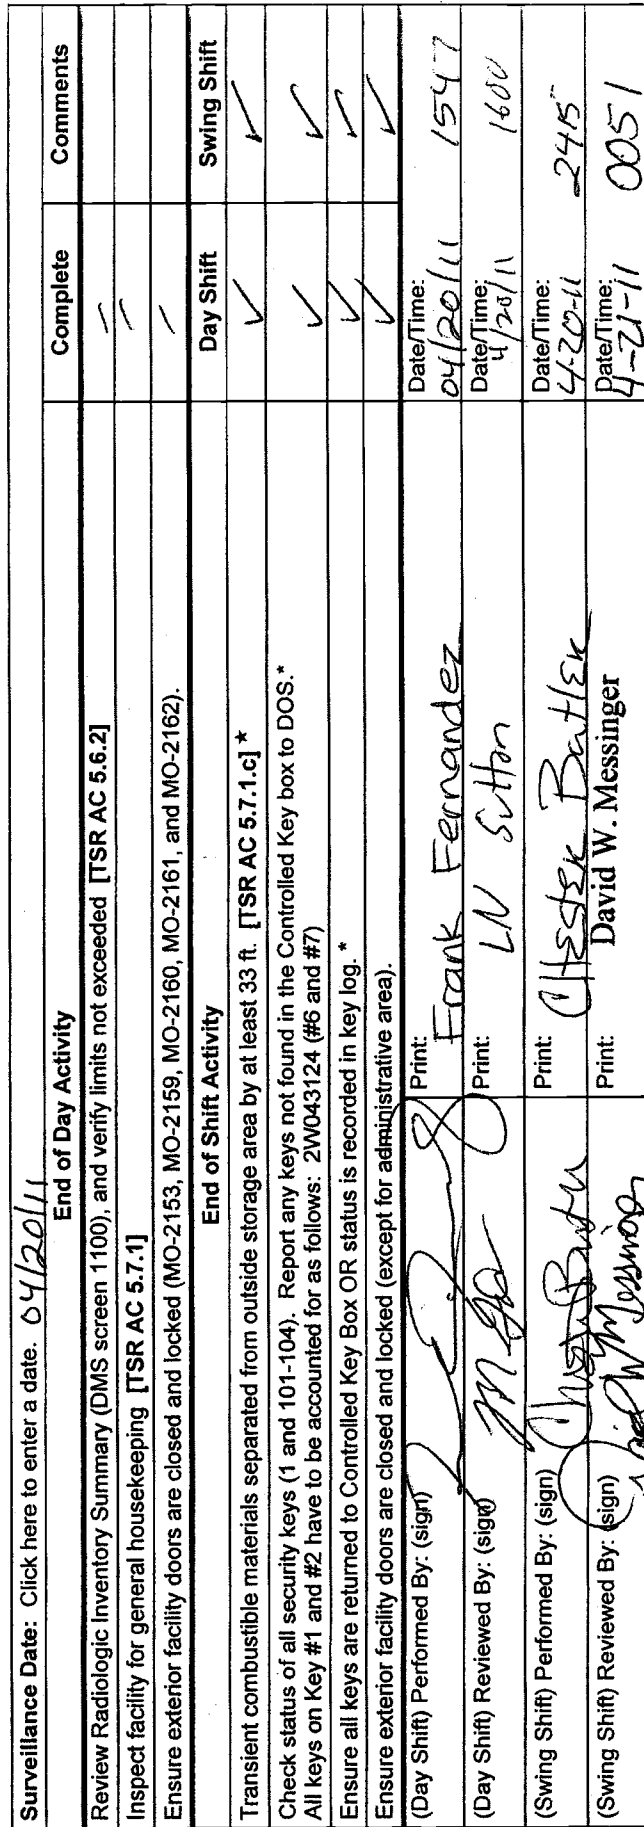 Surveillance Date: Click here to enter a date. 04/20/11
End of Day Activity Complete Comments
Review Radiologic Inventory Summary (DMS screen 1100), and verify limits not exceeded [TSR AC 5.6.2]
Inspect facility for general housekeeping [TSR AC 5.7.1]
Ensure exterior facility doors are closed and locked (MO-2153, MO-2159, MO-2160, MO-2161, and MO-2162).
End of Shift Activity Day Shift Swing Shift
Transient combustible materials separated from outside storage area by at least 33 ft. [TSR AC 5.7.1.c] * ✓ ✓
Check status of all security keys (1 and 101-104). Report any keys not found in the Controlled Key box to DOS.* ✓ ✓
All keys on Key #1 and #2 have to be accounted for as follows: 2W043124 (#6 and #7)
Ensure all keys are returned to Controlled Key Box OR status is recorded in key log. * ✓ ✓
Ensure exterior facility doors are closed and locked (except for administrative area). ✓ ✓
(Day Shift) Performed By: (sign) Print: Frank Fernandez Date/Time: 04/20/11 1547
(Day Shift) Reviewed By: (sign) Print: LN Sutton Date/Time: 4/20/11 1600
(Swing Shift) Performed By: (sign) Print: Chester Butler Date/Time: 4-20-11 2415
(Swing Shift) Reviewed By: (sign) Print: David W. Messinger Date/Time: 4-21-11 0051